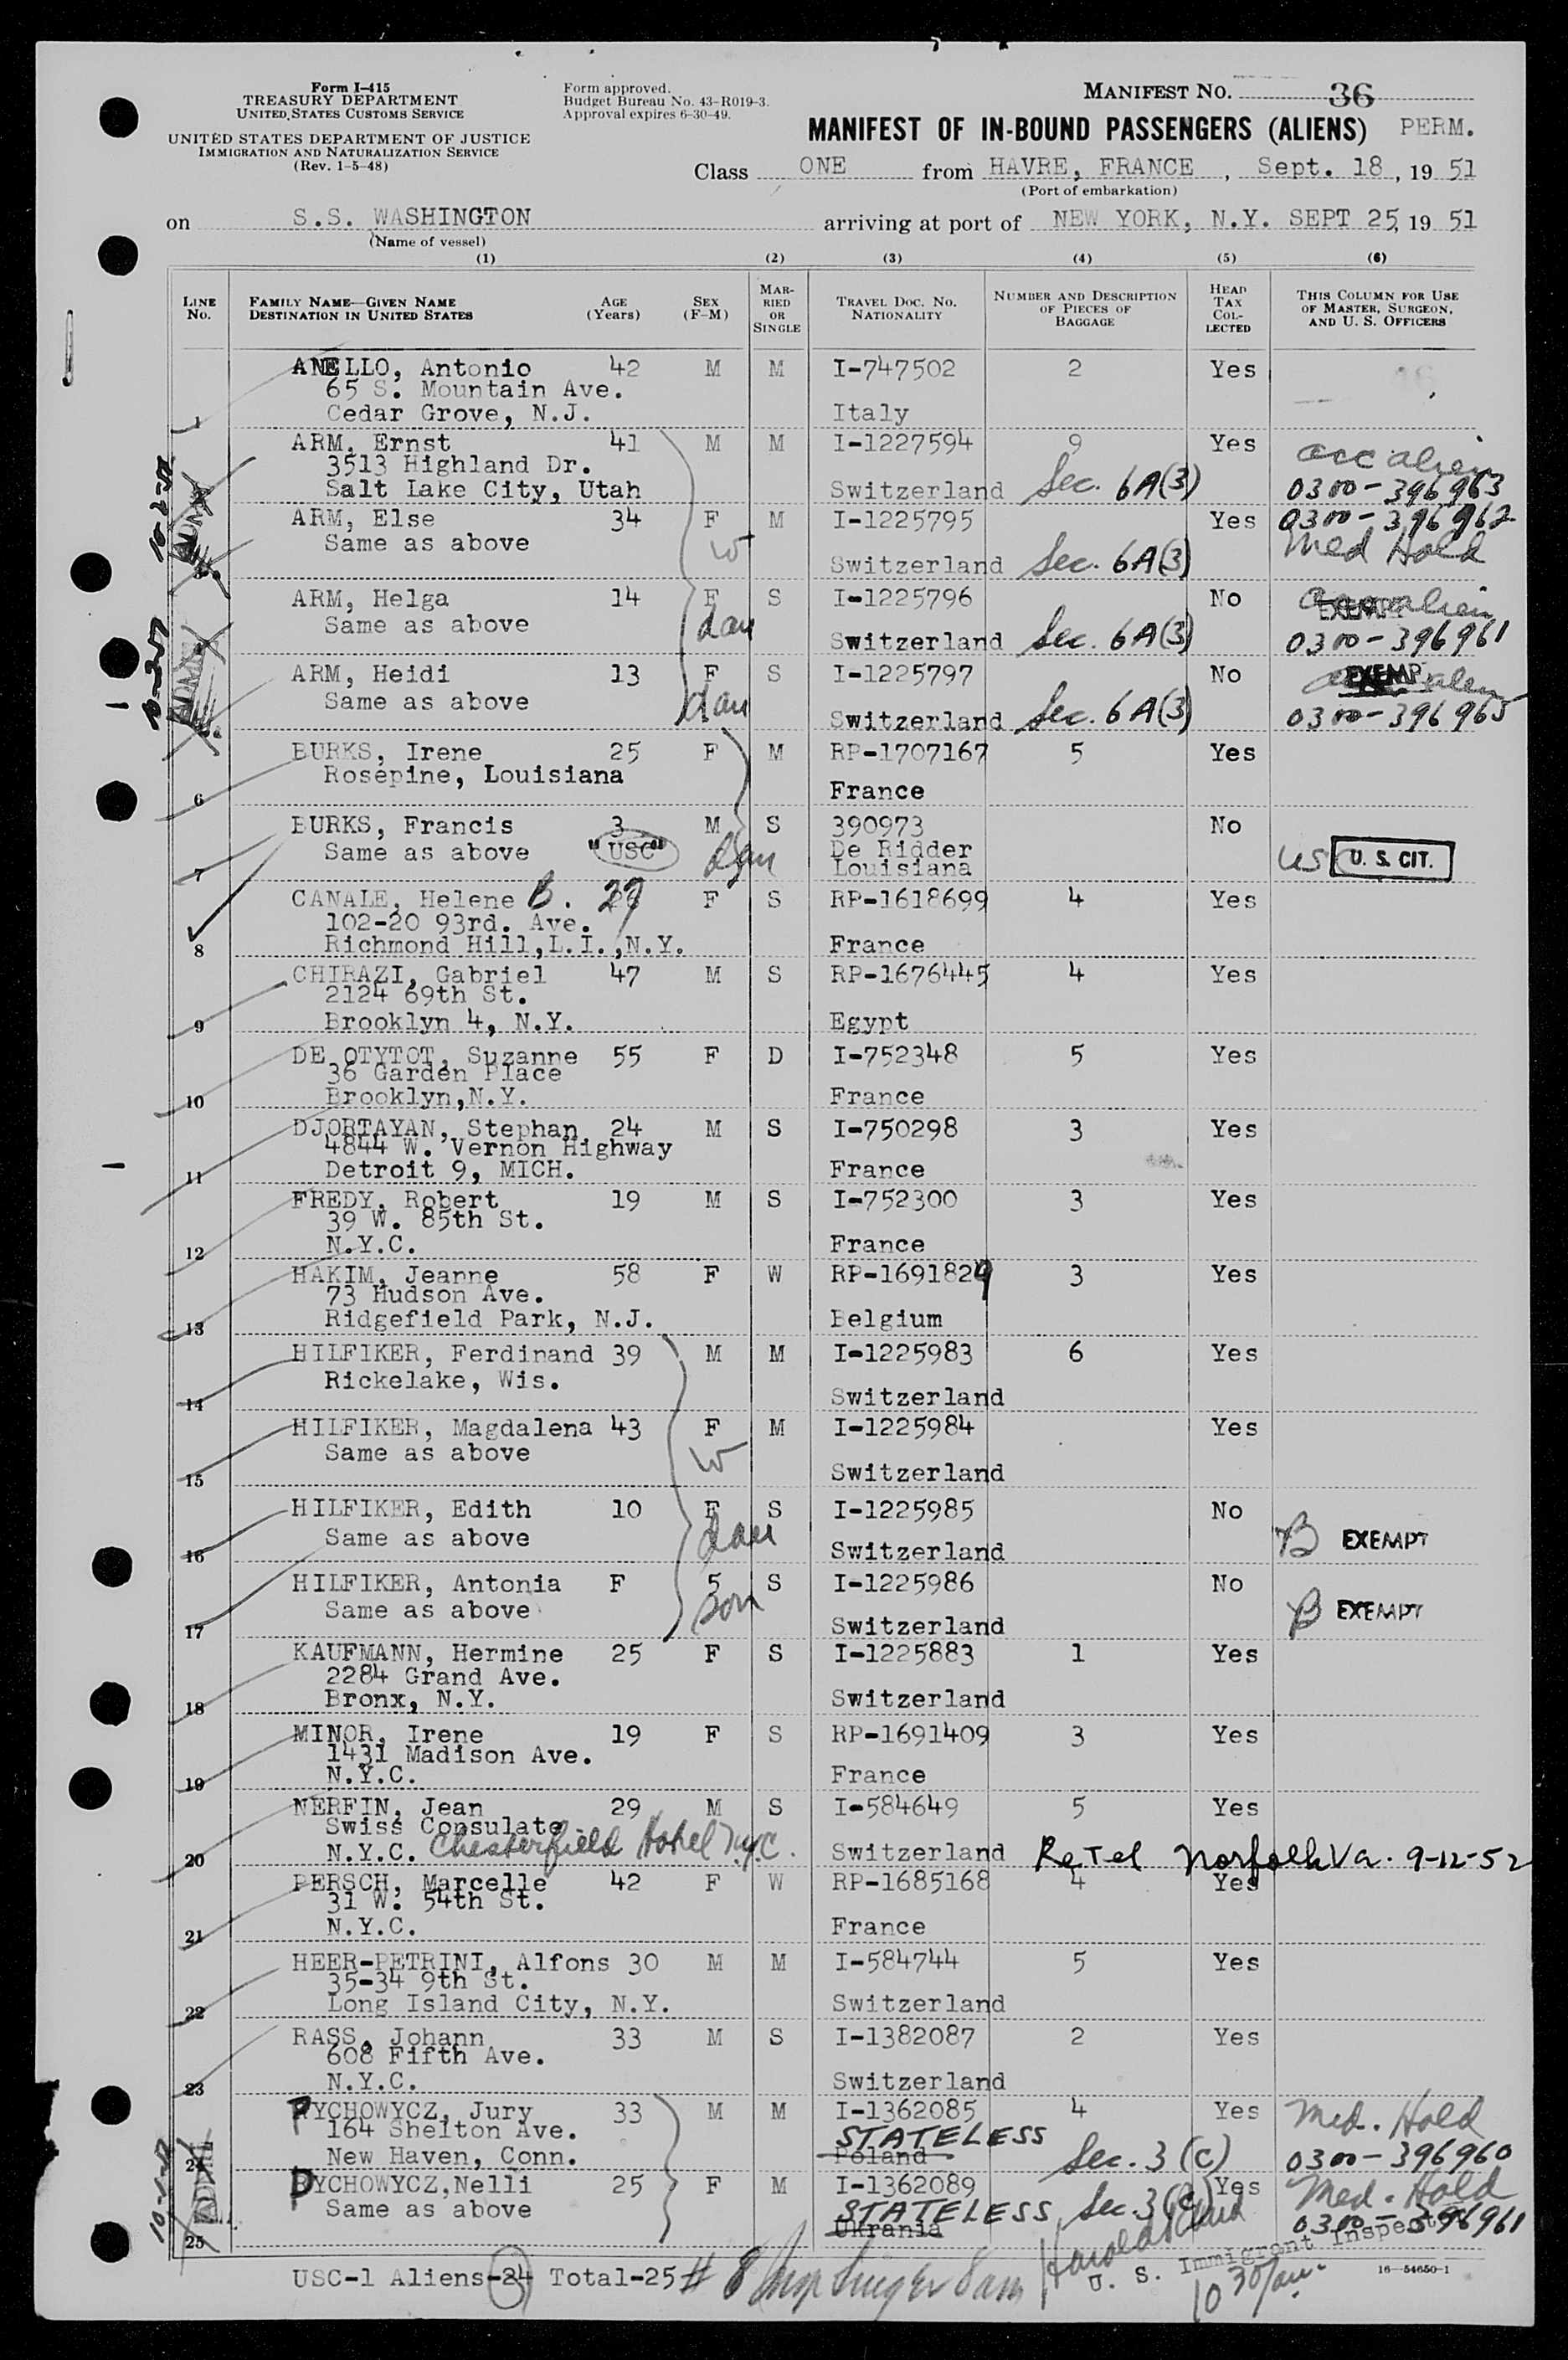 Form I-415
TREASURY DEPARTMENT
UNITED STATES CUSTOMS SERVICE
UNITED STATES DEPARTMENT OF JUSTICE
IMMIGRATION AND NATURALIZATION SERVICE
(Rev. 1-5-48)
Form approved.
Budget Bureau No. 43-R019-3.
Approval expires 6-30-49.
MANIFEST NO. 36
MANIFEST OF IN-BOUND PASSENGERS (ALIENS) PERM.
Class ONE from HAVRE, FRANCE, Sept. 18, 19 51
(Port of embarkation)
on S.S. WASHINGTON arriving at port of NEW YORK, N.Y. SEPT 25, 19 51
(Name of vessel)
(1) (2) (3) (4) (5) (6)
LINE No. FAMILY NAME—GIVEN NAME DESTINATION IN UNITED STATES AGE (Years) SEX (F-M) MARRIED OR SINGLE TRAVEL DOC. NO. NATIONALITY NUMBER AND DESCRIPTION OF PIECES OF BAGGAGE HEAD TAX COLLECTED THIS COLUMN FOR USE OF MASTER, SURGEON, AND U. S. OFFICERS
ANELLO, Antonio 42 M M I-747502 2 Yes
65 S. Mountain Ave.
1 Cedar Grove, N.J. Italy
ARM, Ernst 41 M M I-1227594 9 Yes acc alien
3513 Highland Dr.
Salt Lake City, Utah Switzerland Sec. 6A(3) 0300-396963
ARM, Else 34 F M I-1225795 Yes 0300-396962
Same as above W Med Hold
Switzerland Sec. 6A(3)
ARM, Helga 14 F S I-1225796 No acc alien
Same as above dau EXEMPT
Switzerland Sec. 6A(3) 0300-396961
ARM, Heidi 13 F S I-1225797 No EXEMPT alien
Same as above dau
Switzerland Sec. 6A(3) 0300-396965
BURKS, Irene 25 F M RP-1707167 5 Yes
Rosepine, Louisiana
6 France
BURKS, Francis 3 M S 390973 No
Same as above "USC" De Ridder US U. S. CIT.
7 Louisiana
CANALE, Helene B. 27 F S RP-1618699 4 Yes
102-20 93rd. Ave.
8 Richmond Hill,L.I.,N.Y. France
CHIRAZI, Gabriel 47 M S RP-1676445 4 Yes
2124 69th St.
9 Brooklyn 4, N.Y. Egypt
DE OTYTOT, Suzanne 55 F D I-752348 5 Yes
36 Garden Place
10 Brooklyn,N.Y. France
DJORTAYAN, Stephan 24 M S I-750298 3 Yes
4844 W. Vernon Highway
11 Detroit 9, MICH. France
FREDY, Robert 19 M S I-752300 3 Yes
39 W. 85th St.
12 N.Y.C. France
HAKIM, Jeanne 58 F W RP-1691829 3 Yes
73 Hudson Ave.
13 Ridgefield Park, N.J. Belgium
HILFIKER, Ferdinand 39 M M I-1225983 6 Yes
Rickelake, Wis.
14 Switzerland
HILFIKER, Magdalena 43 F M I-1225984 Yes
Same as above W
15 Switzerland
HILFIKER, Edith 10 F S I-1225985 No
Same as above dau B EXEMPT
16 Switzerland
HILFIKER, Antonia F 5 S I-1225986 No
Same as above son B EXEMPT
17 Switzerland
KAUFMANN, Hermine 25 F S I-1225883 1 Yes
2284 Grand Ave.
18 Bronx, N.Y. Switzerland
MINOR, Irene 19 F S RP-1691409 3 Yes
1431 Madison Ave.
19 N.Y.C. France
NERFIN, Jean 29 M S I-584649 5 Yes
Swiss Consulate
20 N.Y.C. Chesterfield Hotel N.Y.C. Switzerland ReTel Norfolk Va. 9-12-52
PERSCH, Marcelle 42 F W RP-1685168 4 Yes
31 W. 54th St.
21 N.Y.C. France
HEER-PETRINI, Alfons 30 M M I-584744 5 Yes
35-34 9th St.
22 Long Island City, N.Y. Switzerland
RASS, Johann 33 M S I-1382087 2 Yes
608 Fifth Ave.
23 N.Y.C. Switzerland
PYCHOWYCZ, Jury 33 M M I-1362085 4 Yes Med. Hold
164 Shelton Ave. STATELESS
24 New Haven, Conn. Poland Sec. 3(C) 0300-396960
PYCHOWYCZ,Nelli 25 F M I-1362089 Yes Med. Hold
Same as above STATELESS Sec. 3(C) 0300-396961
25 Ukrania
USC-1 Aliens-24 Total-25 # 8
U. S. Immigrant Inspector
10 30/am
16-54650-1